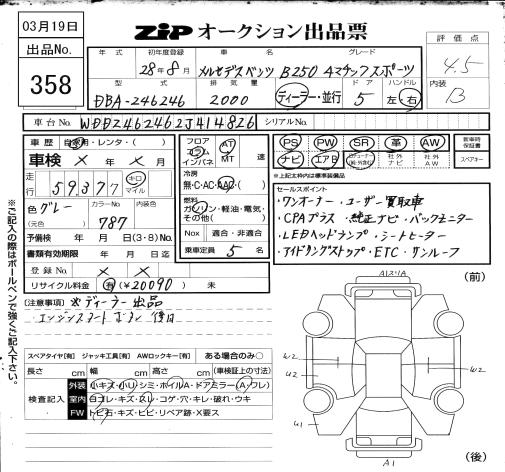 03月19日
ZIP オークション出品票
出品No.
358
年式 初年度登録 車名 グレード 評価点
28年8月 メルセデスベンツ B250 4マチックスポーツ 4.5
型式 排気量 ドア ハンドル 内装
DBA-246246 2000 ディーラー・並行 5 左・右 B
車台No. WDD2462462J414826 シリアルNo.
車歴 自家用・レンタ・( )
フロア コラム インパネ AT MT 速
PS PW SR 革 AW 新車時保証書
ナビ エアB 社外ナビ 社外AW スペアキー
※上記太枠内は標準装備品
車検 × 年 × 月
走行 59,377 キロ マイル
冷房 無・C・AC・AAC・( )
色 グレー カラーNo. 787 内装色
(元色)
燃料 ガソリン・軽油・電気・その他( )
セールスポイント
・ワンオーナー ・ユーザー買取車
・CPAプラス ・純正ナビ ・バックモニター
・LEDヘッドランプ ・シートヒーター
・アイドリングストップ ・ETC ・サンルーフ
予備検 年 月 日(3・8)No.
Nox 適合・非適合
書類有効期限 年 月 日迄
乗車定員 5 名
登録No. × ×
リサイクル料金 有(¥20090)未
(注意事項) ※ディーラー出品
エンジンスタートボタン後日
スペアタイヤ[有] ジャッキ工具[有] AWロックキー[有] ある場合のみ○
長さ cm 幅 cm 高さ cm (車検証上の寸法)
検査記入
外装 小キズ・小凹・シミ・ホイルA・ドアミラー(A・ワレ)
室内 ヨゴレ・キズ・スレ・コゲ・穴・キレ・破れ・ウキ
FW トビ石・キズ・ヒビ・リペア跡・X要ス
※ご記入の際はボールペンで強くご記入下さい。
(前)
U2
W2
W2
U2
U1
A1
(後)